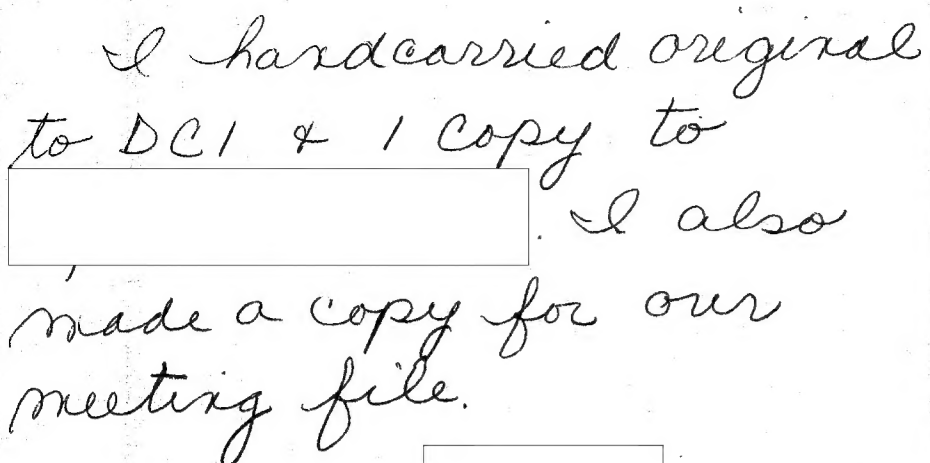 I handcarried original
to DCI & 1 copy to
. I also
made a copy for our
meeting file.